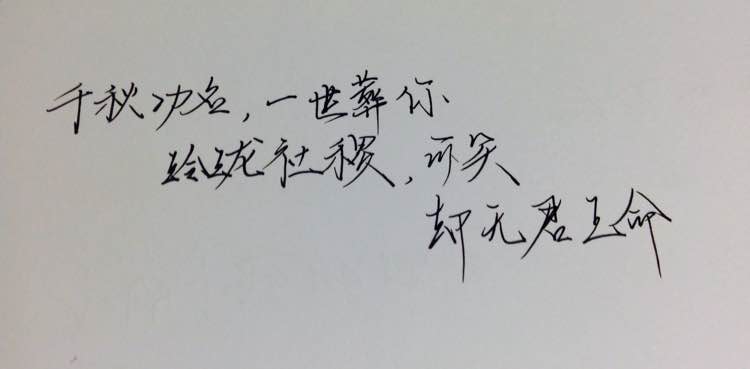 千秋功名,一世葬你
玲珑社稷,可笑
却无君王命